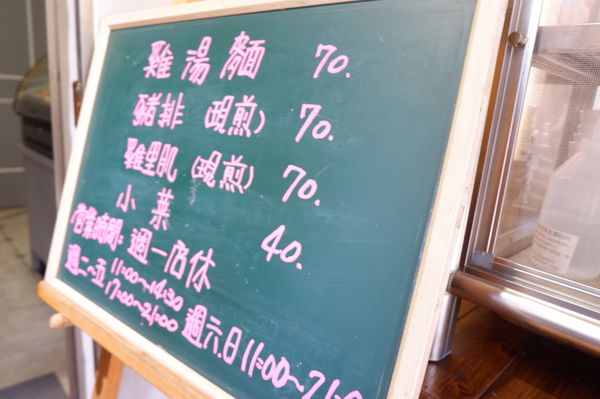 雞湯麵 70.
豬排(現煎) 70.
雞里肌(現煎) 70.
小菜 40.
營業時間:週一店休
週二~五 11:00~14:30
17:00~21:00
週六.日 11:00~21:0